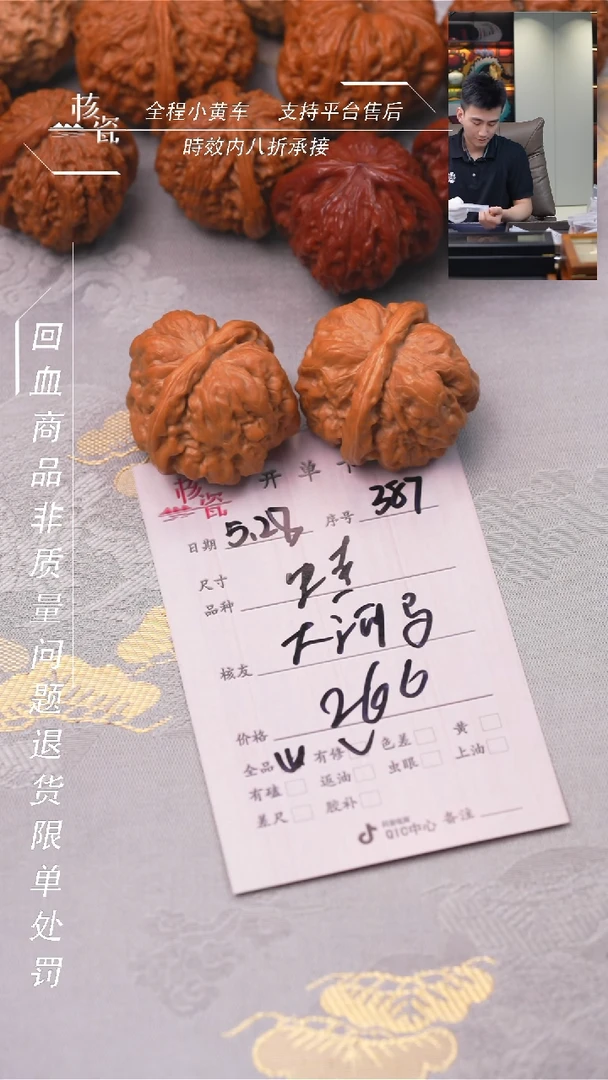 核瓷
全程小黄车 支持平台售后
時效内八折承接
回血商品非质量问题退货限单处罚
核瓷 开单卡
日期 5.28 序号 387
尺寸
品种
核友 大河马
价格 266
全品 有修 色差 黄
有磕 返油 虫眼 上油
差尺 胶补
QIC中心 备注